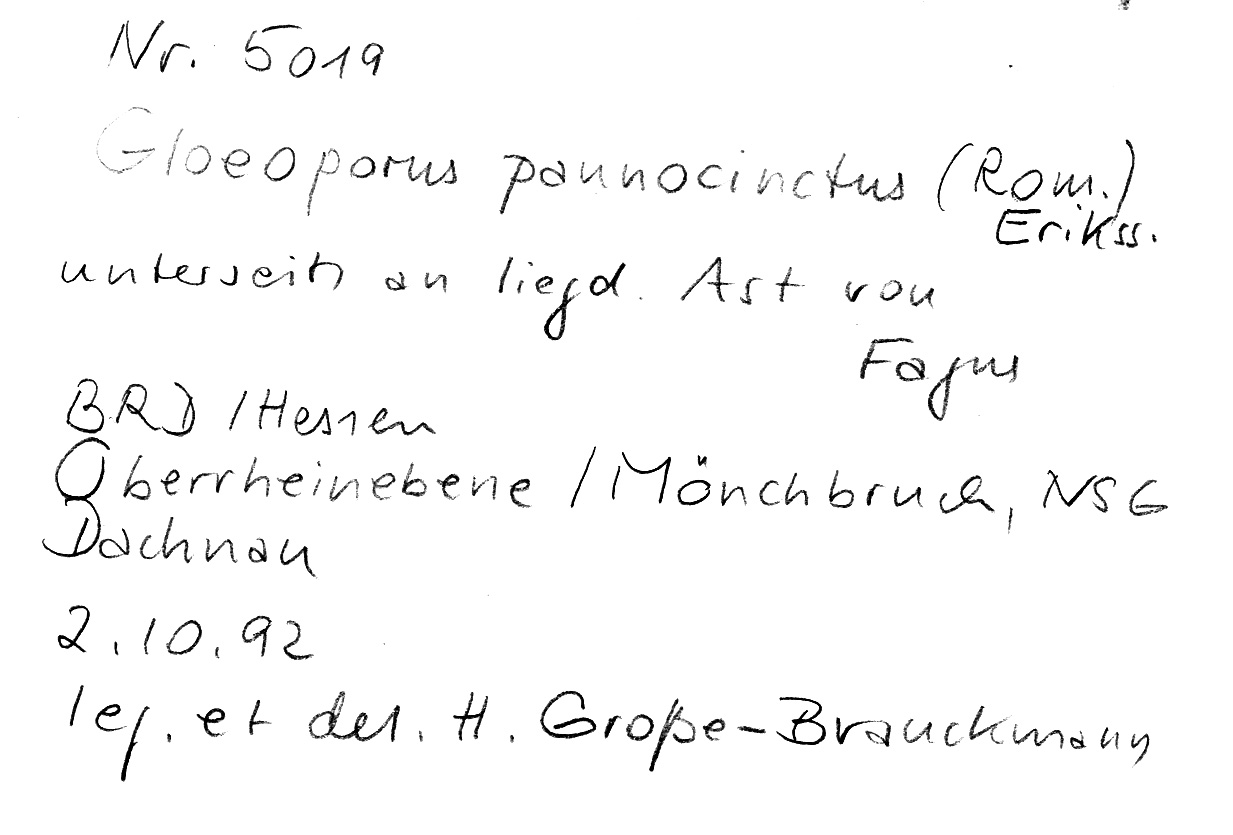 Nr. 5019
Gloeoporus pannocinctus (Rom.)
Erikss.
unterseits an liegd. Ast von
Fagus
BRD / Hessen
Oberrheinebene / Mönchbruch, NSG
Dachnau
2.10.92
leg. et det. H. Große-Brauckmann